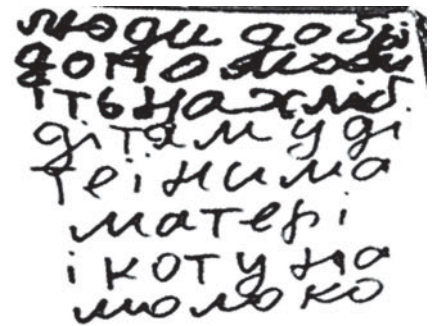 люди добрі
допоможи
іть на хліб.
дітям у ді
теї нима
матері
і коту на
молоко